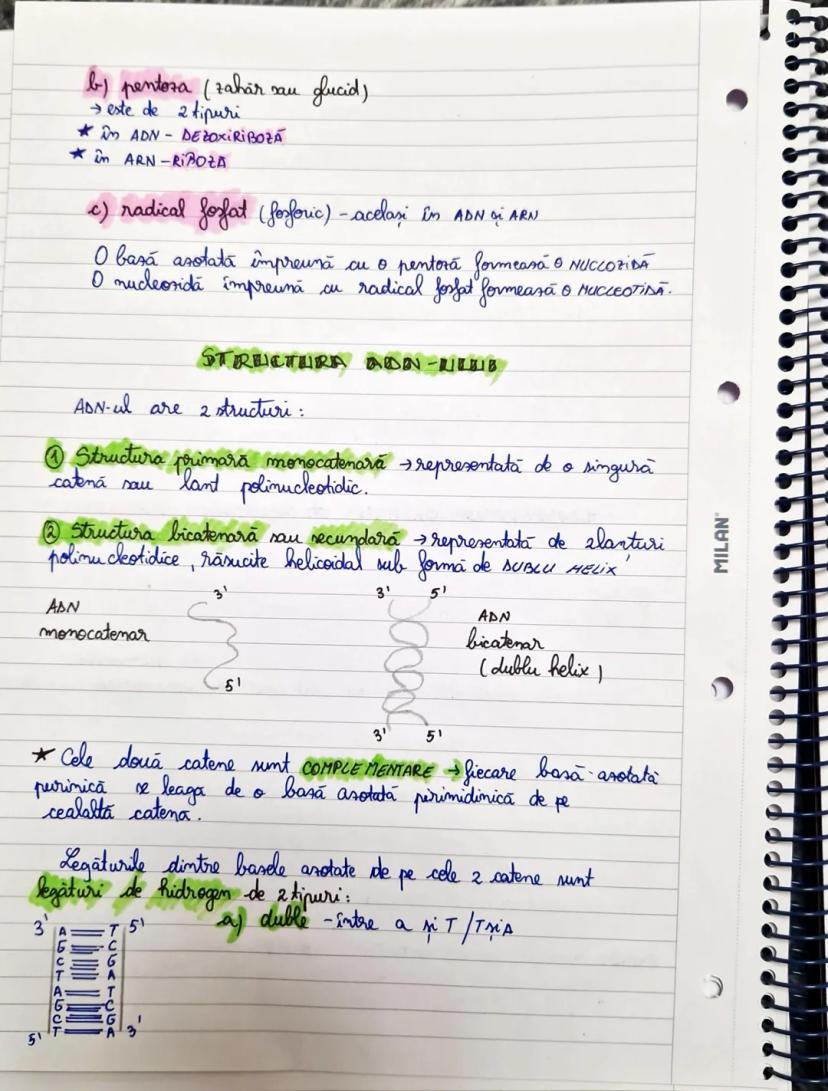 b) pentoza (zahăr sau glucid)
→ este de 2 tipuri
★ în ADN - DEZOXIRIBOZĂ
★ în ARN - RIBOZĂ
c) radical fosfat (fosforic) - același în ADN și ARN
O bază azotată împreună cu o pentoză formează o NUCLOZIDĂ
O nucleozidă împreună cu radical fosfat formează o NUCLEOTIDĂ.
STRUCTURA ADN-ULUI
ADN-ul are 2 structuri:
① Structura primară monocatenară → reprezentată de o singură
catenă sau lant polinucleotidic.
② Structura bicatenară sau secundară → reprezentată de 2 lanturi
polinucleotidice, răsucite helicoidal sub formă de DUBLU HELIX
ADN
monocatenar
3'
5'
3' 5'
3' 5'
ADN
bicatenar
(dublu helix)
MILAN
★ Cele două catene sunt COMPLEMENTARE → fiecare bază azotată
purinică se leaga de o bază azotată pirimidinică de pe
cealaltă catenă.
Legăturile dintre bazele azotate de pe cele 2 catene sunt
legături de hidrogen de 2 tipuri:
a) duble - între a și T / T și A
3' A T 5'
G C
C G
T A
A T
G C
C G
5' T A 3'